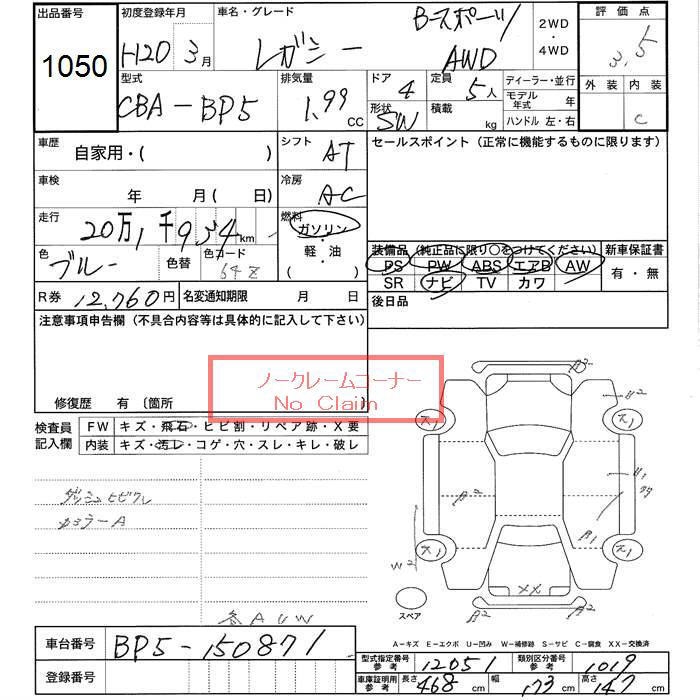 出品番号
1050
初度登録年月
H20 3月
車名・グレード
レガシー
B-スポーツ
AWD
2WD
・
4WD
評価点
3.5
外装 内装
C
型式
CBA-BP5
排気量
1.99 CC
ドア 4
形状 SW
定員 5人
積載 kg
ディーラー・並行
モデル年式 年
ハンドル 左・右
車歴
自家用・( )
シフト AT
セールスポイント (正常に機能するものに限ります)
車検
年 月( 日)
冷房 AC
走行
20万1千934km
燃料
ガソリン
・
軽・油
( )
色 ブルー
色替
色コード 64Z
装備品 (純正品に限り○をつけてください)
PS PW ABS エアB AW
SR ナビ TV カワ
新車保証書
有・無
後日品
R券 12,760円
名変通知期限 月 日
注意事項申告欄 (不具合内容等は具体的に記入して下さい)
ノークレームコーナー
No Claim
修復歴 有 〔箇所 〕
検査員記入欄
FW キズ・飛石・ヒビ割・リペア跡・X要
内装 キズ・汚レ・コゲ・穴・スレ・キレ・破レ
ダッシュヒビワレ
カメラーA
各AUW
スペア
A-キズ E-エクボ U-凹み W-補修跡 S-サビ C-腐食 XX-交換済
車台番号 BP5-150871
登録番号
型式指定番号参考 12051
類別区分番号参考 1019
車庫証明用参考 長さ 468cm 幅 173cm 高さ 147cm